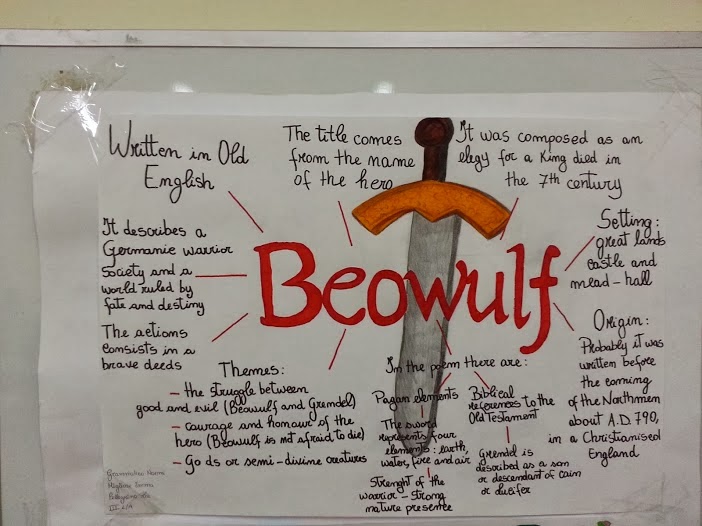 Written in Old
English
The title comes
from the name
of the hero
It was composed as an
elegy for a King died in
the 7th century
It describes a
Germanic warrior
society and a
world ruled by
fate and destiny
The actions
consists in a
brave deeds
Beowulf
Setting:
great lands
castle and
mead-hall
Origin:
Probably it was
written before
the coming
of the Northmen
about A.D. 790,
in a Christianised
England
Themes:
- the struggle between
good and evil (Beowulf and Grendel)
- courage and honour of the
hero (Beowulf is not afraid to die)
- Gods or semi-divine creatures
In the poem there are:
Pagan elements
The sword
represents four
elements: earth,
water, fire and air
Strenght of the
warrior - strong
nature presence
Biblical
references to the
Old Testament
Grendel is
described as a son
or descendant of cain
or lucifer